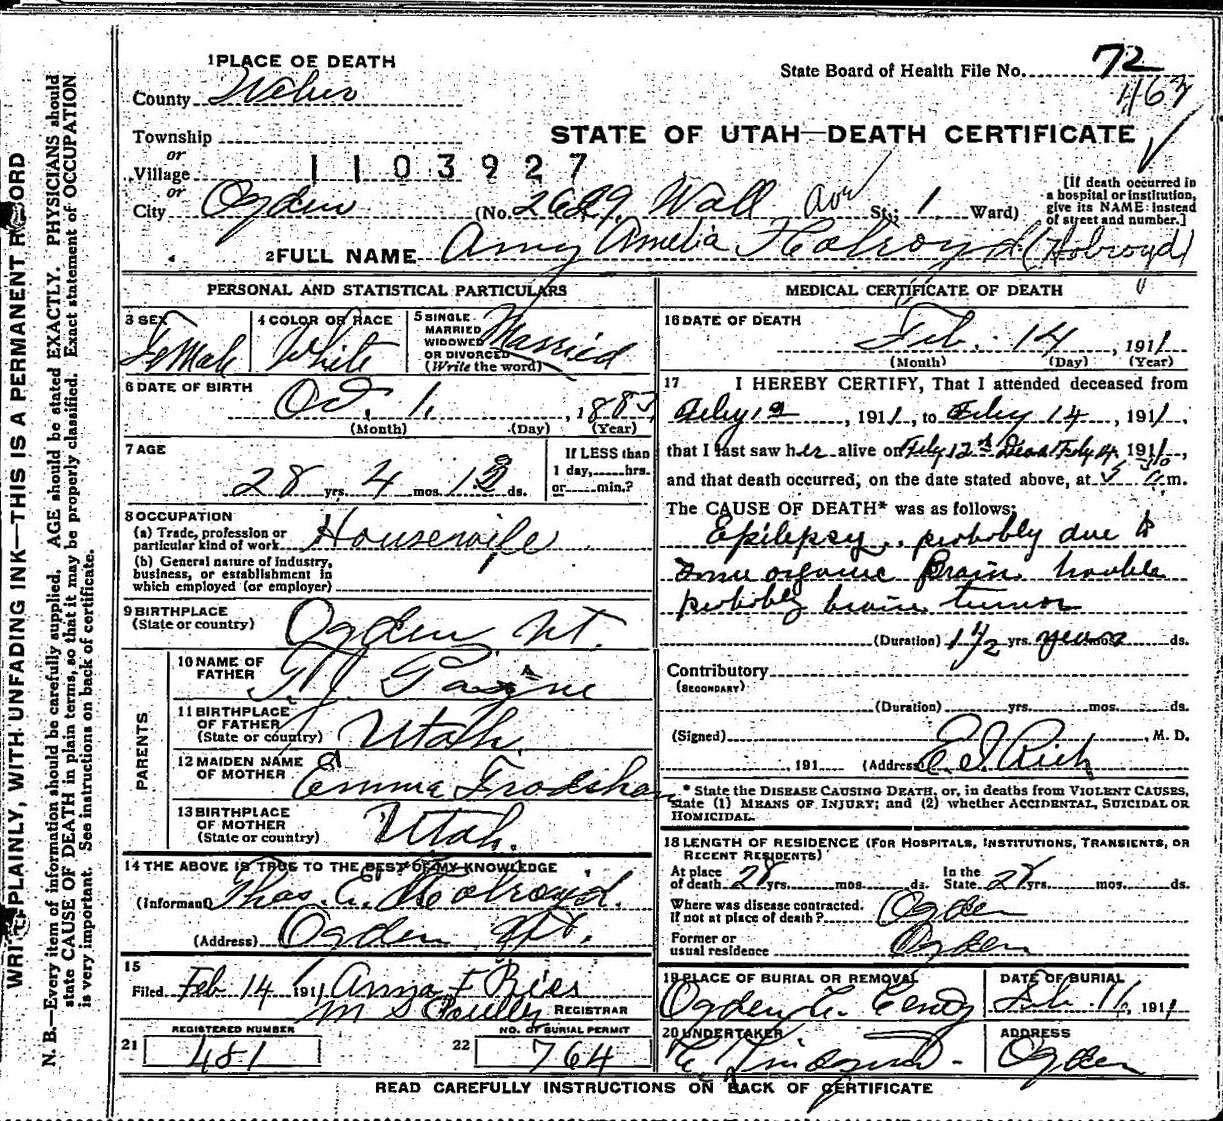 WRITE PLAINLY, WITH UNFADING INK—THIS IS A PERMANENT RECORD
N. B.—Every item of information should be carefully supplied. AGE should be stated EXACTLY. PHYSICIANS should
state CAUSE OF DEATH in plain terms, so that it may be properly classified. Exact statement of OCCUPATION
is very important. See instructions on back of certificate.
1 PLACE OF DEATH
County Weber
State Board of Health File No. 72
1167
Township
or
Village 1103927
or
City Ogden (No. 2629 Wall ave St.; 1 Ward)
STATE OF UTAH—DEATH CERTIFICATE
[If death occurred in
a hospital or institution,
give its NAME instead
of street and number.]
2 FULL NAME Amy Amelia Holroyd (Holroyd)
PERSONAL AND STATISTICAL PARTICULARS
3 SEX Female
4 COLOR OR RACE White
5 SINGLE
MARRIED
WIDOWED
OR DIVORCED
(Write the word) Married
6 DATE OF BIRTH Oct. 1, 188
(Month) (Day) (Year)
7 AGE 28 yrs. 4 mos. 13 ds.
If LESS than
1 day, hrs.
or min.?
8 OCCUPATION
(a) Trade, profession or
particular kind of work Housewife
(b) General nature of industry,
business, or establishment in
which employed (or employer)
9 BIRTHPLACE
(State or country) Ogden Ut.
PARENTS
10 NAME OF
FATHER Payne
11 BIRTHPLACE
OF FATHER
(State or country) Utah
12 MAIDEN NAME
OF MOTHER Emma Frodsham
13 BIRTHPLACE
OF MOTHER
(State or country) Utah.
14 THE ABOVE IS TRUE TO THE BEST OF MY KNOWLEDGE
(Informant) Thos. Holroyd.
(Address) Ogden Ut.
15
Filed Feb 14 1911 Anna F Ries
REGISTRAR
REGISTERED NUMBER
21 481
NO. OF BURIAL PERMIT
22 764
MEDICAL CERTIFICATE OF DEATH
16 DATE OF DEATH
Feb. 14, 1911
(Month) (Day) (Year)
17 I HEREBY CERTIFY, That I attended deceased from
Feby 12, 1911, to Feby 14, 1911,
that I last saw her alive on Feby 12th Dead Feby 14 1911,
and that death occurred, on the date stated above, at m.
The CAUSE OF DEATH* was as follows:
Epilepsy probably due to
some organic Brain trouble
probably brain tumor
(Duration) 1 1/2 yrs. years mos. ds.
Contributory
(SECONDARY)
(Duration) yrs. mos. ds.
(Signed) E I Rich, M. D.
, 191 (Address)
* State the DISEASE CAUSING DEATH, or, in deaths from VIOLENT CAUSES,
state (1) MEANS OF INJURY; and (2) whether ACCIDENTAL, SUICIDAL OR
HOMICIDAL.
18 LENGTH OF RESIDENCE (FOR HOSPITALS, INSTITUTIONS, TRANSIENTS, OR
RECENT RESIDENTS)
At place
of death 28 yrs. mos. ds. In the
State 28 yrs. mos. ds.
Where was disease contracted.
If not at place of death? Ogden
Former or
usual residence Ogden
19 PLACE OF BURIAL OR REMOVAL
Ogden
DATE OF BURIAL
Feb. 16, 1911
20 UNDERTAKER
ADDRESS
Ogden
READ CAREFULLY INSTRUCTIONS ON BACK OF CERTIFICATE